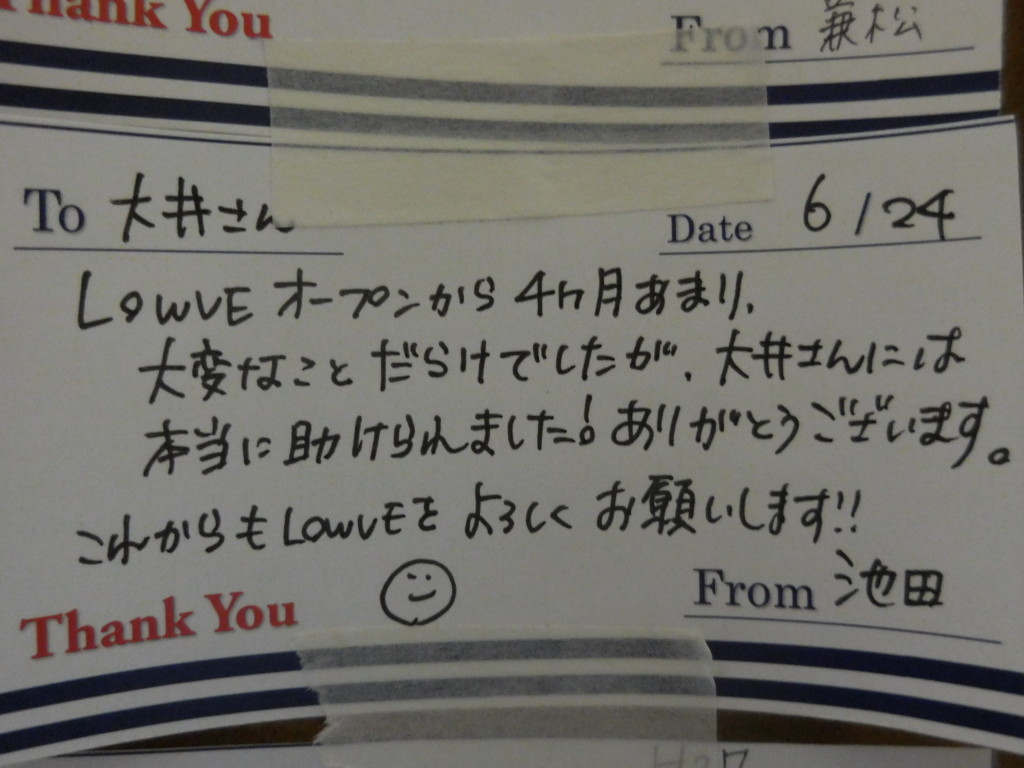 Thank You
From 兼松
To 大井さん
Date 6/24
LOWVE オープンから 4ヶ月あまり、
大変なこと だらけでしたが、大井さんには
本当に助けられました!ありがとうございます。
これからもLOWVEを よろしく お願いします!!
Thank You
From 池田